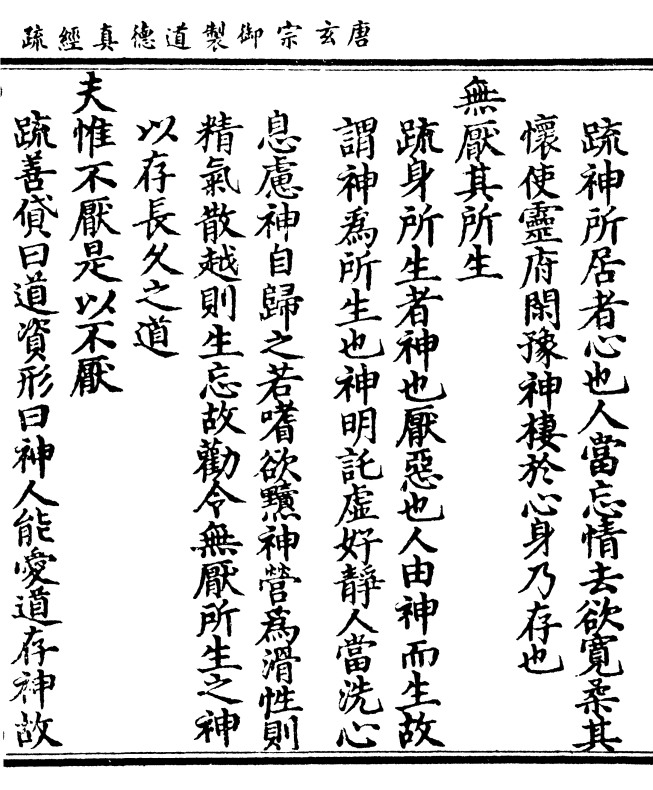 唐玄宗御製道德真經疏
疏神所居者心也人當忘情去欲寬柔其
懷使靈府閑豫神棲於心身乃存也
無厭其所生
疏身所生者神也厭惡也人由神而生故
謂神爲所生也神明託虛好靜人當洗心
息慮神自歸之若嗜欲黷神營爲滑性則
精氣散越則生忘故勸令無厭所生之神
以存長久之道
夫惟不厭是以不厭
疏善貸曰道資形曰神人能愛道存神故